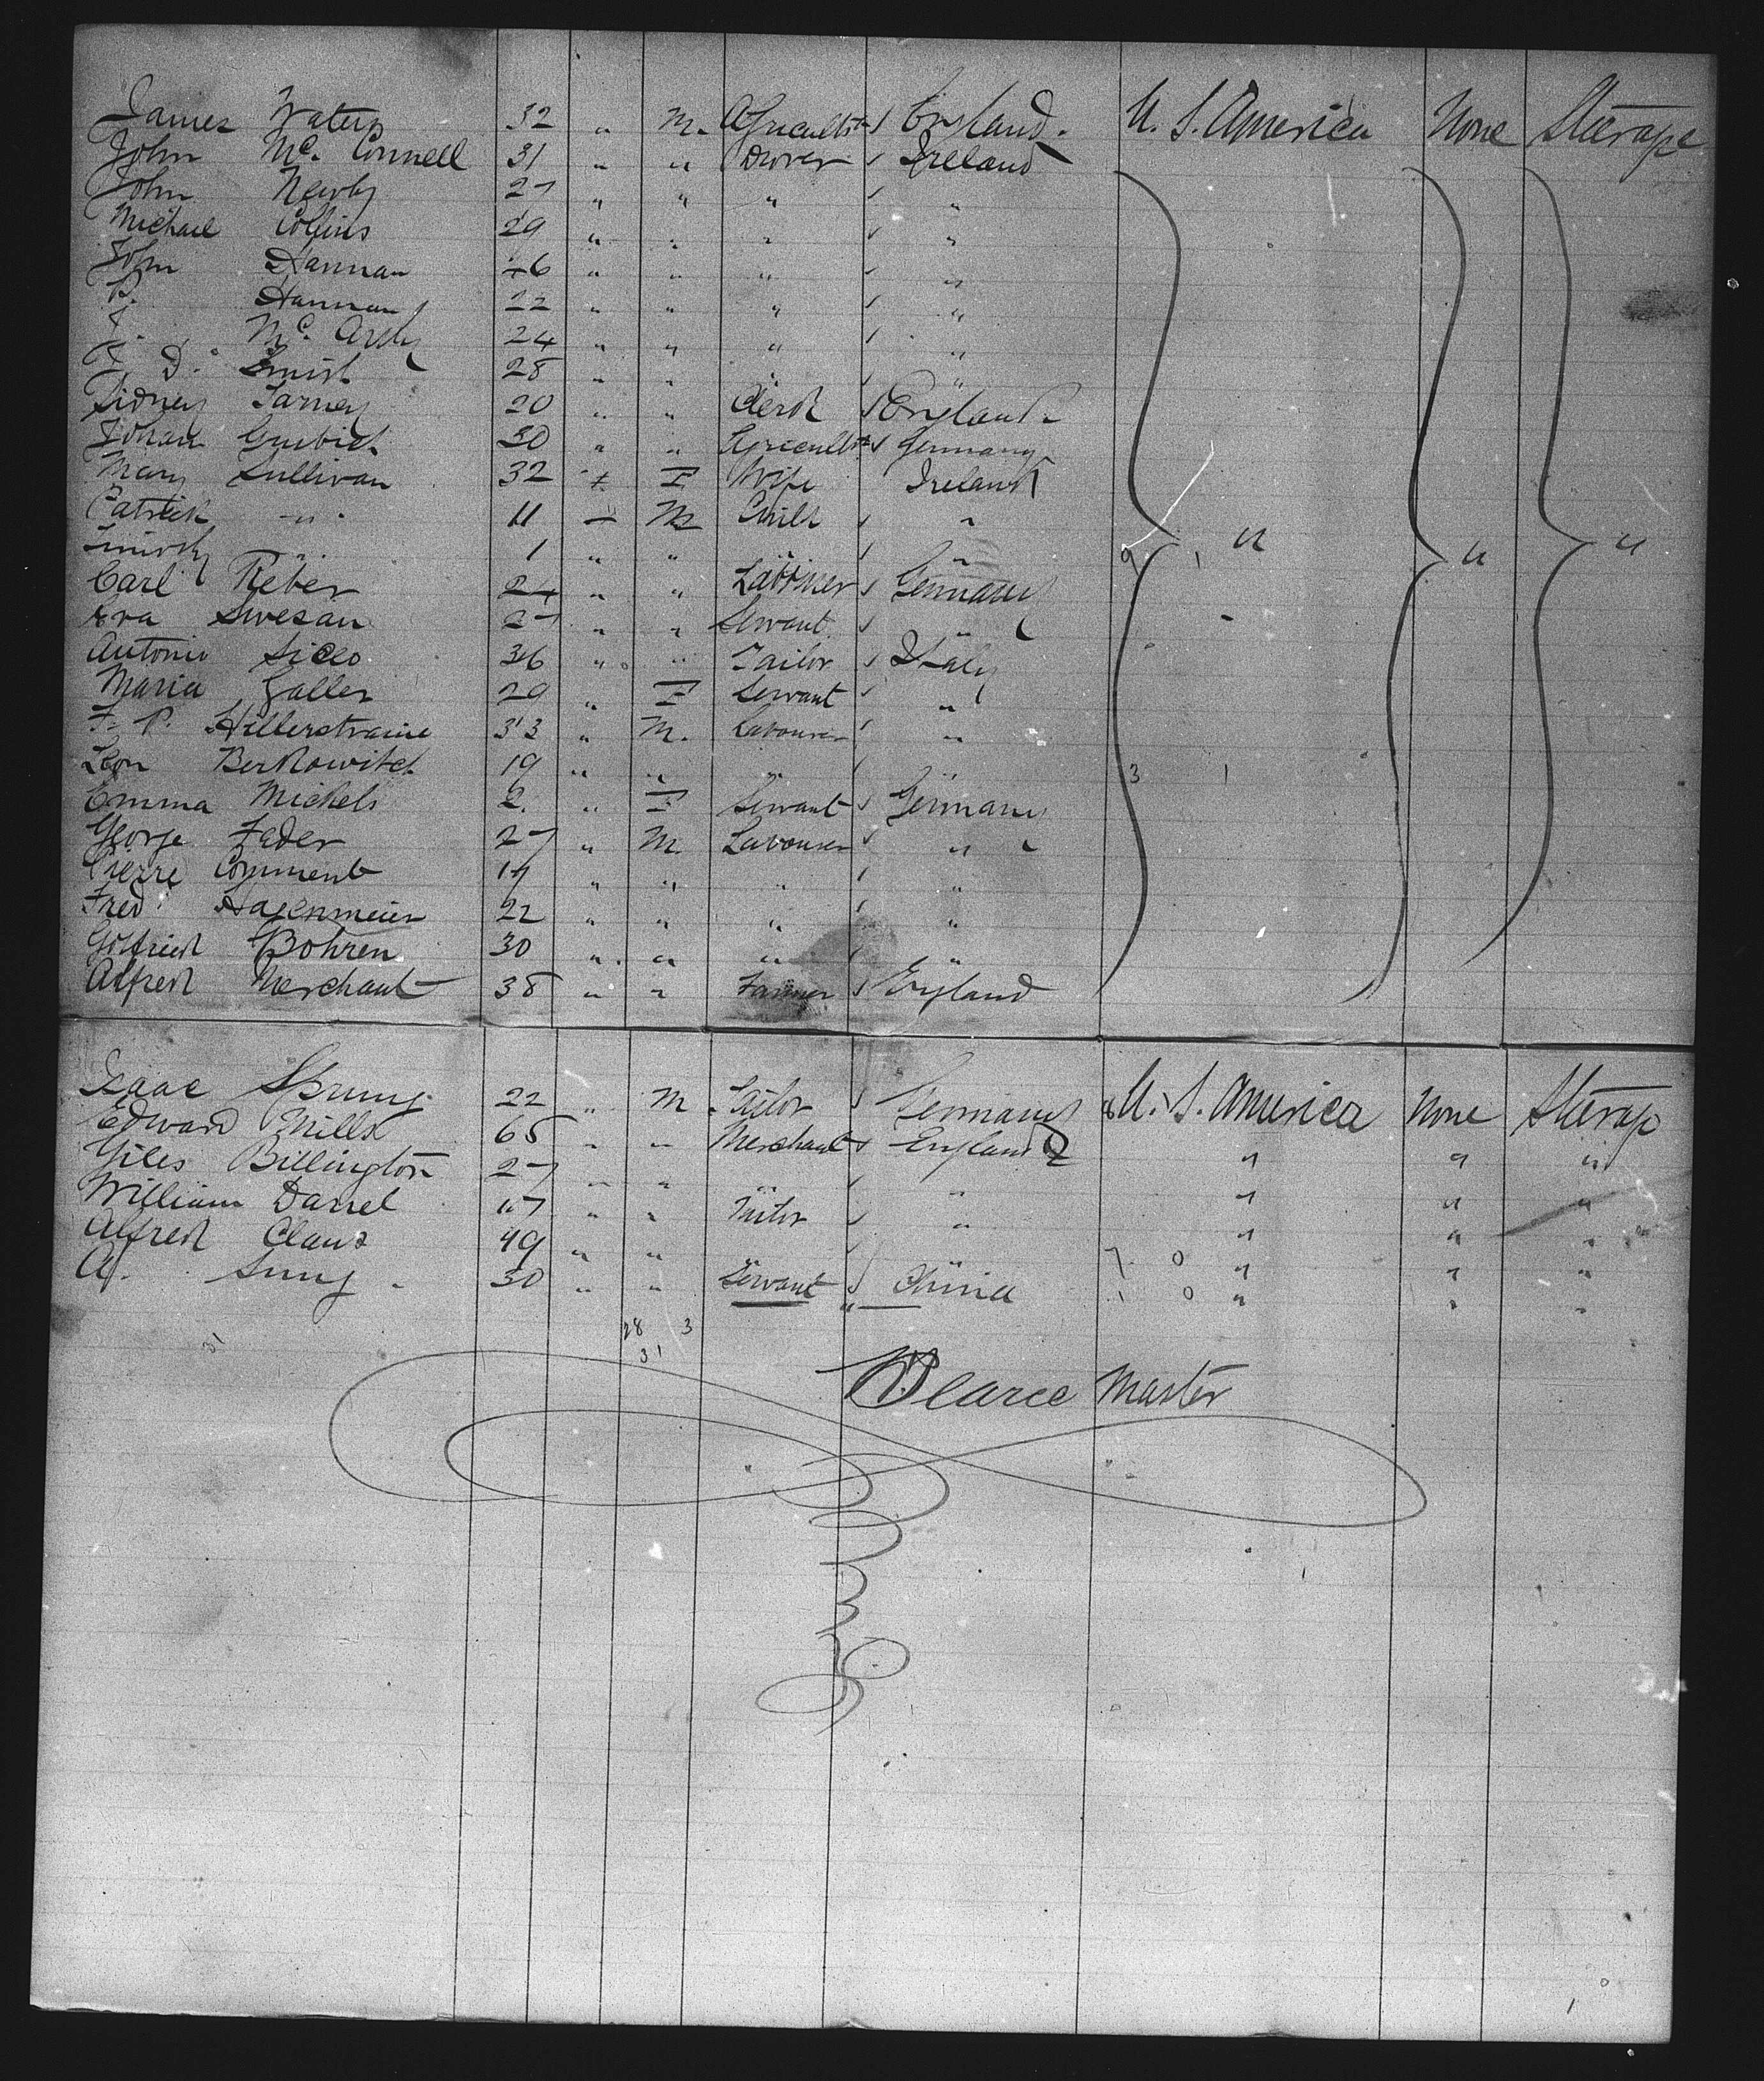 James 32 " M. Agricultst England. U. S. America None Steerage
John Mc. Connell 31 " " Drover Ireland
John Newby 27 " " " "
Michael Collins 29 " " " "
John Hannan 46 " " " "
P. Hannan 22 " " " "
J. Mc. 24 " " " "
J. D. Smith 28 " " " "
Sidney 20 " " Clerk England
Johan 30 " " Agricultst Germany
Mary Sullivan 32 + F Wife Ireland
Patrick " 11 - M Child "
" 1 " " " "
Carl Reber 24 " " Labourer Germany
Eva Swesan 27 " " Servant "
Antonio 36 " " Tailor Italy
Maria Galler 29 " F Servant "
F. P. Hillerstraine 33 " M. Labourer "
Leon Berkowitch 19 " " " "
Emma Michels 2. " F Servant Germany
George Fader 27 " M. Labourer "
Pierre Comment 17 " " " "
Fred Hagenmeier 22 " " " "
Gotfried Bohren 30 " " " "
Alfred Merchant 38 " " Farmer England
" " "
9 1
3 1
Isaac Sprung 22 " M. Tailor Germany U. S. America None Steerage
Edward Mills 65 " " Merchant England 2 " " "
Giles Billington 27 " " " " " " "
William Darrel 17 " " " " " "
Alfred Claus 49 " " " " 7 0 " " "
A. Sung 30 " " Servant China 1 0 " " "
28 3
31
Pearce Master